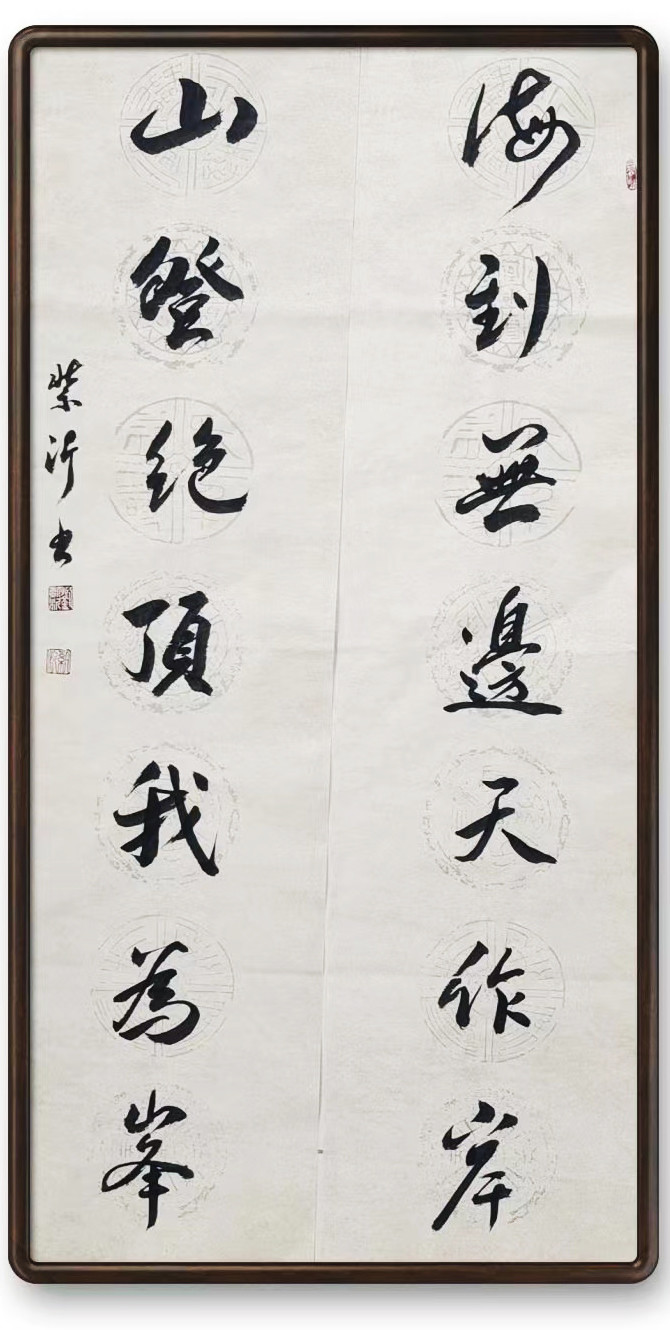 海到無邊天作岸
山登絕頂我為峯
紫沂书